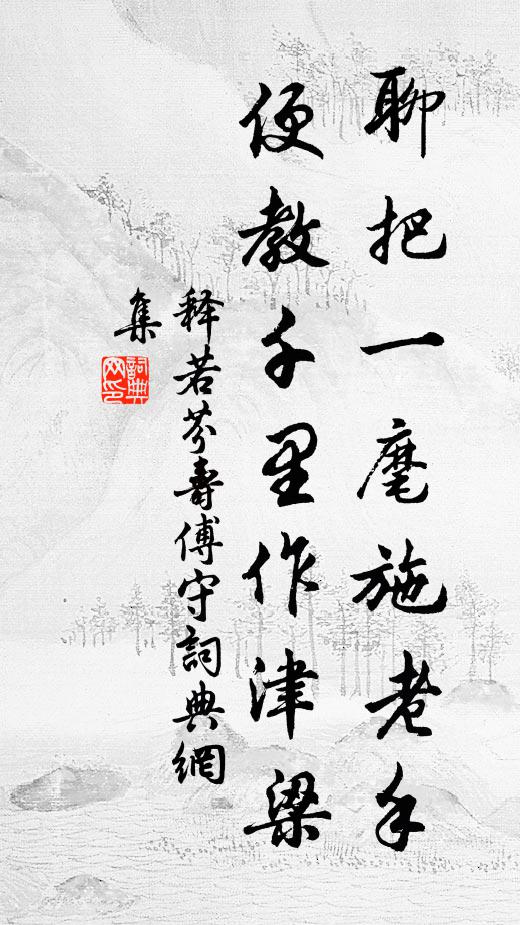 聊把一麾施老手
便教千里作津梁
释若芬寿傅守詞典網
集
詞典網印